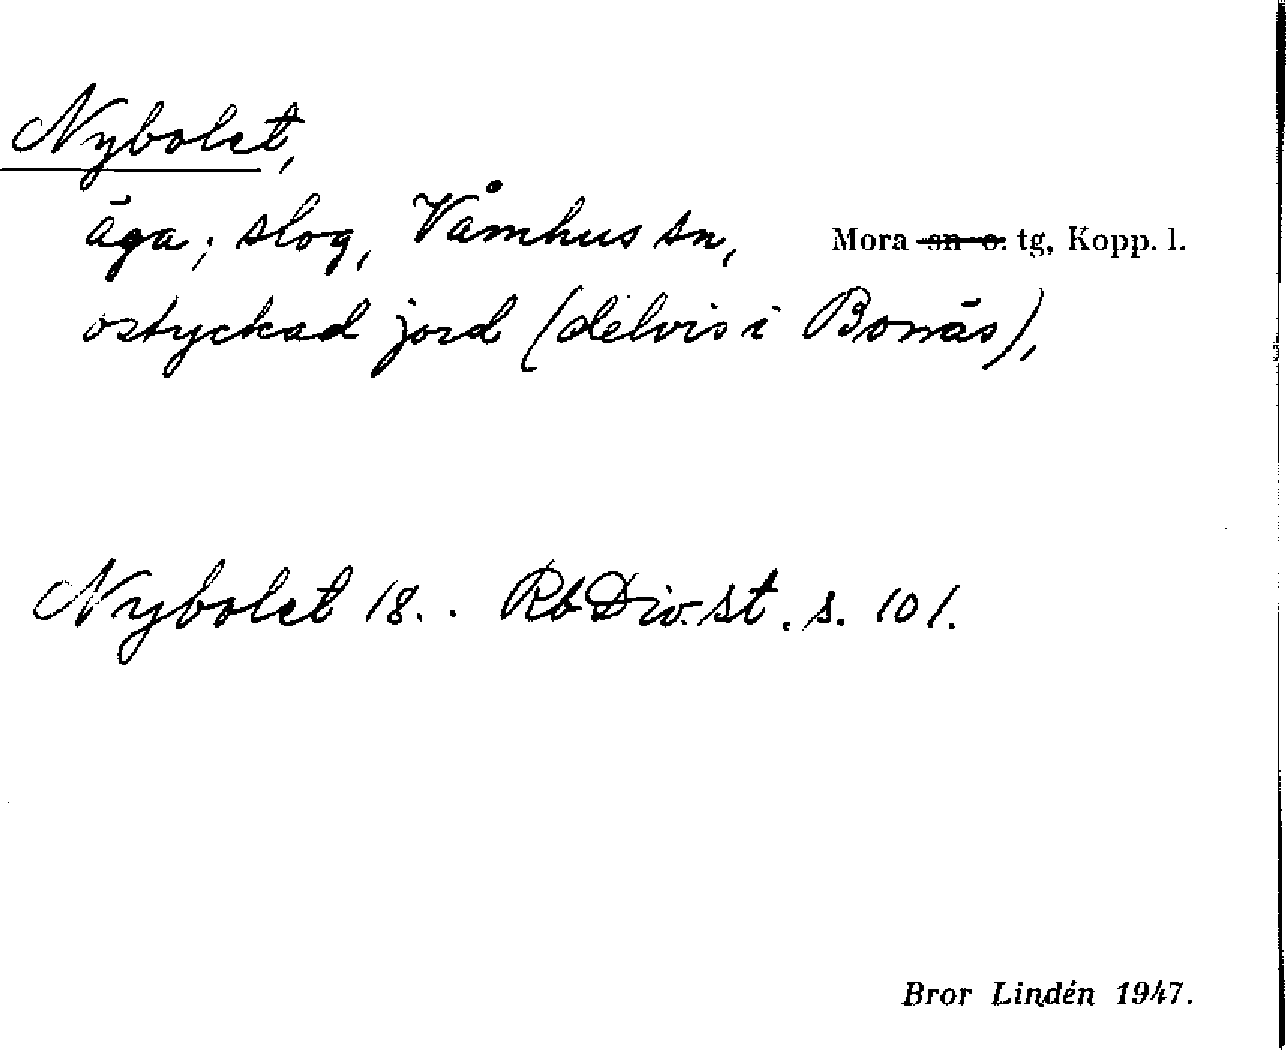 Nybolet,
äga; slog, Våmhus sn, Mora sn o. tg, Kopp. l.
ostyckad jord (delvis i Bonäs),
Nybolet 18.. Rb Div. st. s. 101.
Bror Lindén 1947.